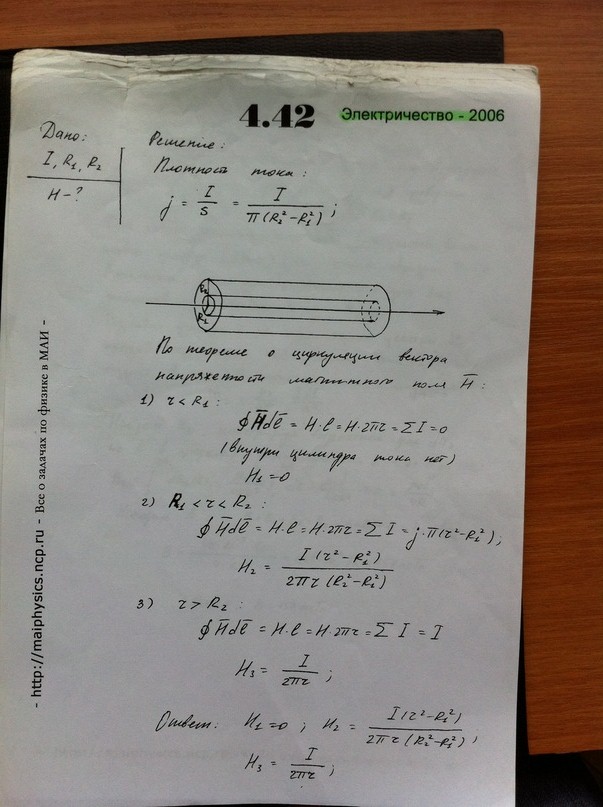 4.42 Электричество - 2006
Дано:
I, R₁, R₂
H - ?
Решение:
Плотность тока:
j = I/S = I/(π(R₂²-R₁²));
R₂
R₁
По теореме о циркуляции вектора
напряженности магнитного поля H̅:
1) r < R₁:
∮H̅dl̅ = H·l = H·2πr = ΣI = 0
(внутри цилиндра тока нет)
H₁=0
2) R₁ < r < R₂:
∮H̅dl̅ = H·l = H·2πr = ΣI = j·π(r²-R₁²);
H₂ = I(r²-R₁²)/(2πr(R₂²-R₁²))
3) r > R₂:
∮H̅dl̅ = H·l = H·2πr = ΣI = I
H₃ = I/(2πr);
Ответ: H₁=0; H₂ = I(r²-R₁²)/(2πr(R₂²-R₁²));
H₃ = I/(2πr);
- http://maiphysics.ncp.ru - Все о задачах по физике в МАИ -